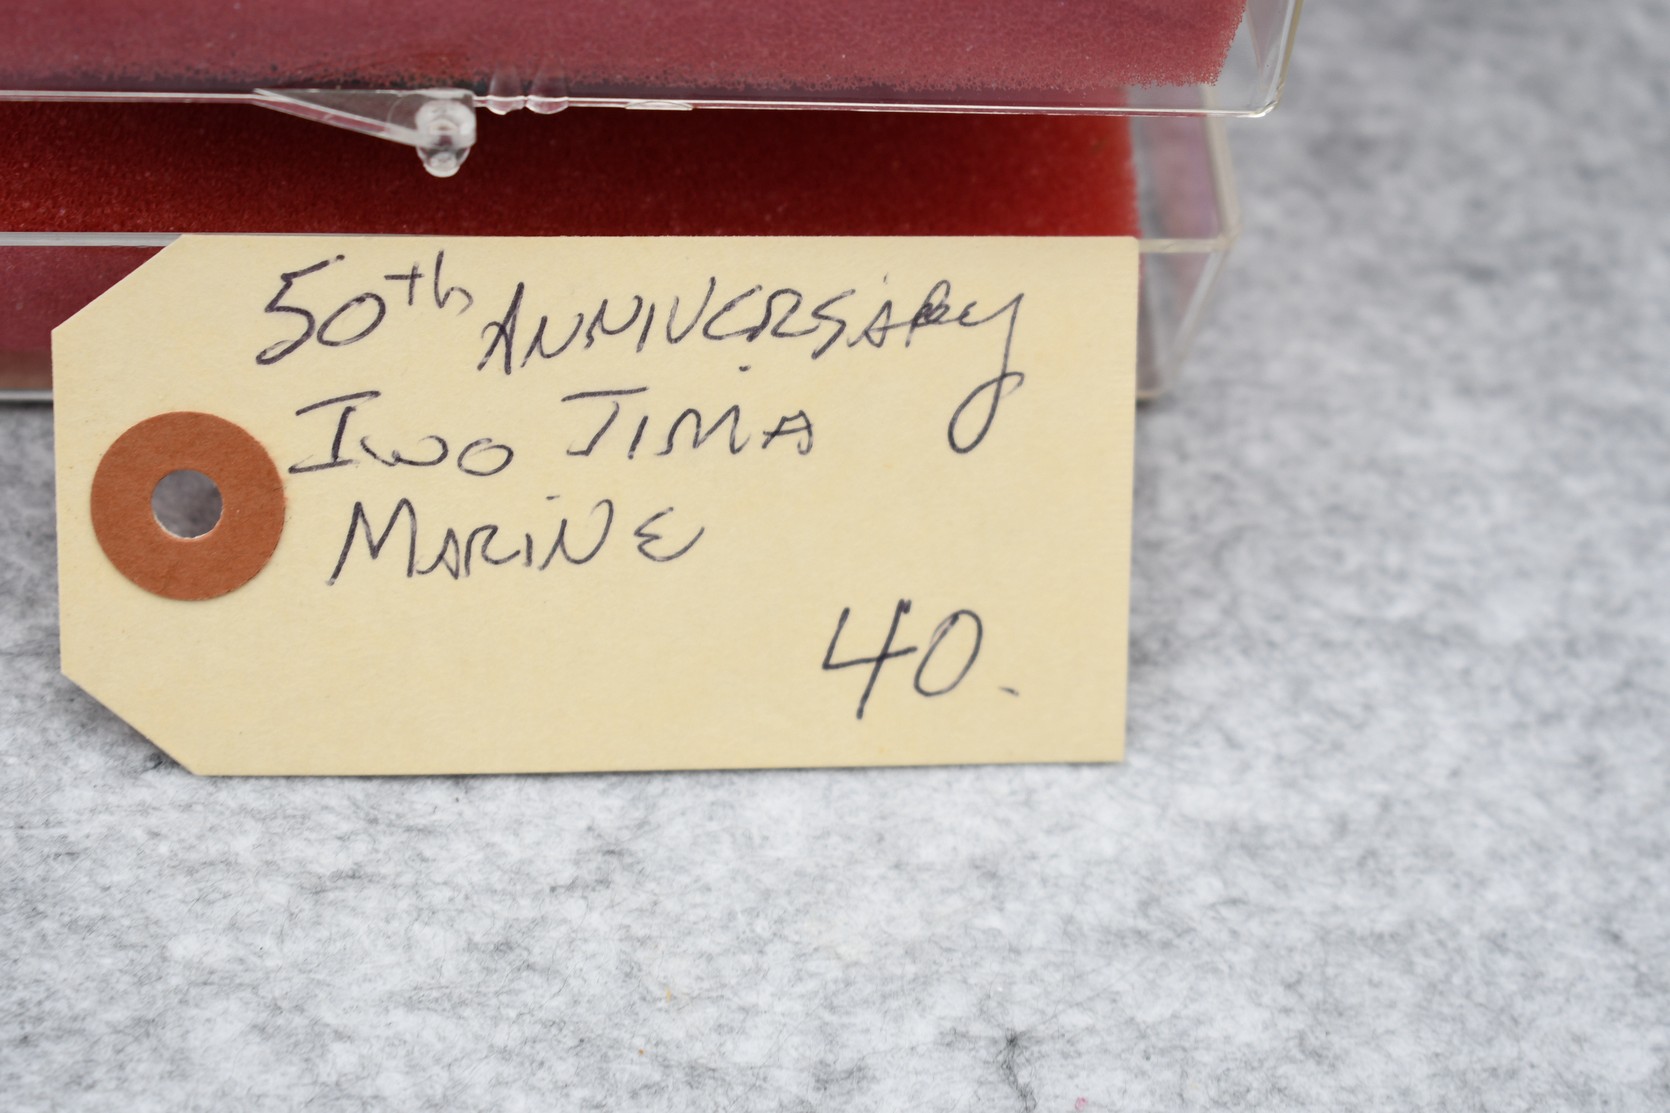 50th ANNIVERSARY
IWO JIMA
MARINE
40.